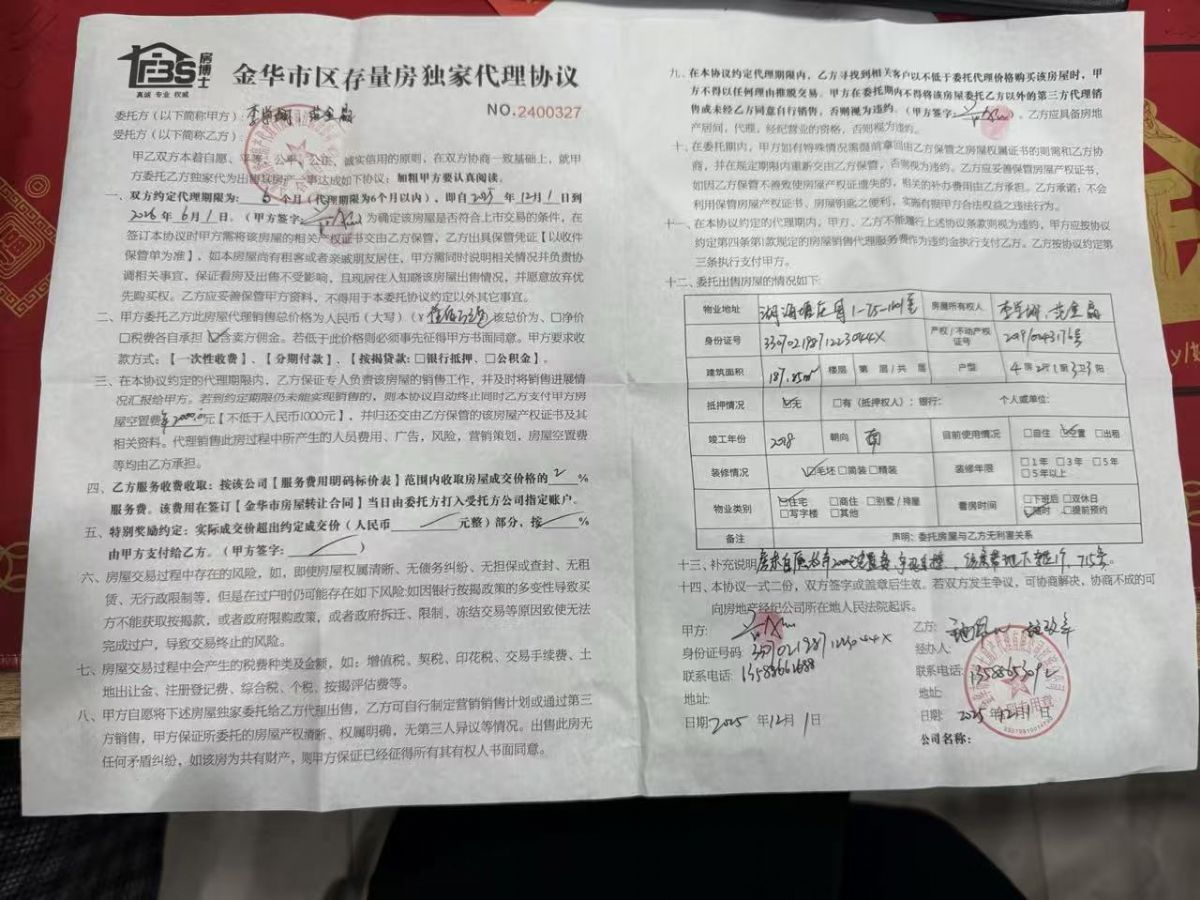 FBS 房博士
真诚 专业 权威
金华市区存量房独家代理协议
NO.2400327
委托方（以下简称甲方）：
受托方（以下简称乙方）：
甲乙双方本着自愿、平等、公平、公正、诚实信用的原则，在双方协商一致基础上，就甲
方委托乙方独家代为出售其房产一事达成如下协议：加粗甲方要认真阅读。
一、双方约定代理期限为：6个月（代理期限为6个月以内），即自2025年12月1日到
2026年6月1日。（甲方签字： ）为确定该房屋是否符合上市交易的条件，在
签订本协议时甲方需将该房屋的相关产权证书交由乙方保管，乙方出具保管凭证【以收件
保管单为准】，如本房屋尚有租客或者亲戚朋友居住，甲方需同时说明相关情况并负责协
调相关事宜，保证看房及出售不受影响，且现居住人知晓该房屋出售情况，并愿意放弃优
先购买权。乙方应妥善保管甲方资料，不得用于本委托协议约定以外其它事宜。
二、甲方委托乙方此房屋代理销售总价格为人民币（大写）（¥ 该总价为、□净价
□税费各自承担 ☑含卖方佣金。若低于此价格则必须事先征得甲方书面同意。甲方要求收
款方式：【一次性收费】、【分期付款】、【按揭贷款：□银行抵押、□公积金】。
三、在本协议约定的代理期限内，乙方保证专人负责该房屋的销售工作，并及时将销售进展情
况汇报给甲方。若到约定期限仍未能实现销售的，则本协议自动终止同时乙方支付甲方房
屋空置费 2000元【不低于人民币1000元】，并归还交由乙方保管的该房屋产权证书及其
相关资料。代理销售此房过程中所产生的人员费用、广告，风险，营销策划，房屋空置费
等均由乙方承担。
四、乙方服务收费收取：按该公司【服务费用明码标价表】范围内收取房屋成交价格的 2 %
服务费。该费用在签订【金华市房屋转让合同】当日由委托方打入受托方公司指定账户。
五、特别奖励约定：实际成交价超出约定成交价（人民币 元整）部分，按 %
由甲方支付给乙方。（甲方签字： ）
六、房屋交易过程中存在的风险，如，即使房屋权属清晰、无债务纠纷、无担保或查封、无租
赁、无行政限制等，但是在过户时仍可能存在如下风险:如因银行按揭政策的多变性导致买
方不能获取按揭款，或者政府限购政策，或者政府拆迁、限制、冻结交易等原因致使无法
完成过户，导致交易终止的风险。
七、房屋交易过程中会产生的税费种类及金额，如：增值税、契税、印花税、交易手续费、土
地出让金、注册登记费、综合税、个税、按揭评估费等。
八、甲方自愿将下述房屋独家委托给乙方代理出售，乙方可自行制定营销销售计划或通过第三
方销售，甲方保证所委托的房屋产权清晰、权属明确，无第三人异议等情况。出售此房无
任何矛盾纠纷，如该房为共有财产，则甲方保证已经征得所有其有权人书面同意。
九、在本协议约定代理期限内，乙方寻找到相关客户以不低于委托代理价格购买该房屋时，甲
方不得以任何理由推脱交易。甲方在委托期内不得将该房屋委托乙方以外的第三方代理销
售或未经乙方同意自行销售，否则视为违约。（甲方签字： ），乙方应具备房地
产居间，代理，经纪营业的资格，否则视为违约。
十、在委托期内，甲方如有特殊情况需提前拿回由乙方保管之房屋权属证书的则需和乙方协
商，并在规定期限内重新交由乙方保管，否则视为违约。乙方应妥善保管房屋产权证书，
如因乙方保管不善致使房屋产权证遗失的，相关的补办费用由乙方承担。乙方承诺：不会
利用保管房屋产权证书、房屋钥匙之便利，实施有损甲方合法权益之违法行为。
十一、在本协议约定的代理期内，甲方、乙方不能履行上述协议条款则视为违约，甲方应按协议
约定第四条第1款规定的房屋销售代理服务费作为违约金执行支付乙方。乙方按协议约定第
三条执行支付甲方。
十二、委托出售房屋的情况如下:
物业地址 湖海塘庄园1-25-1101室 房屋所有权人
身份证号 33070219871223044X 产权/不动产权证号
建筑面积 187.85m² 楼层 第 层/共 层 户型 4房2厅1厨3卫 阳
抵押情况 ☑无 □有（抵押权人）：银行： 个人或单位：
竣工年份 2018 朝向 南 目前使用情况 □自住 ☑空置 □出租
装修情况 ☑毛坯 □简装 □精装 装修年限 □1年 □3年 □5年 □5年以上
物业类别 ☑住宅 □商住 □别墅/排屋 □写字楼 □其他 看房时间 □下班后 □双休日 ☑随时 □提前预约
备注 声明：委托房屋与乙方无利害关系
十三、补充说明
十四、本协议一式二份，双方签字或盖章后生效。若双方发生争议，可协商解决，协商不成的可
向房地产经纪公司所在地人民法院起诉。
甲方: 乙方:
身份证号码: 33070219871223044X 经办人:
联系电话: 13588661688 联系电话:
地址: 地址:
日期 2025年12月1日 日期: 2025年12月1日
公司名称: